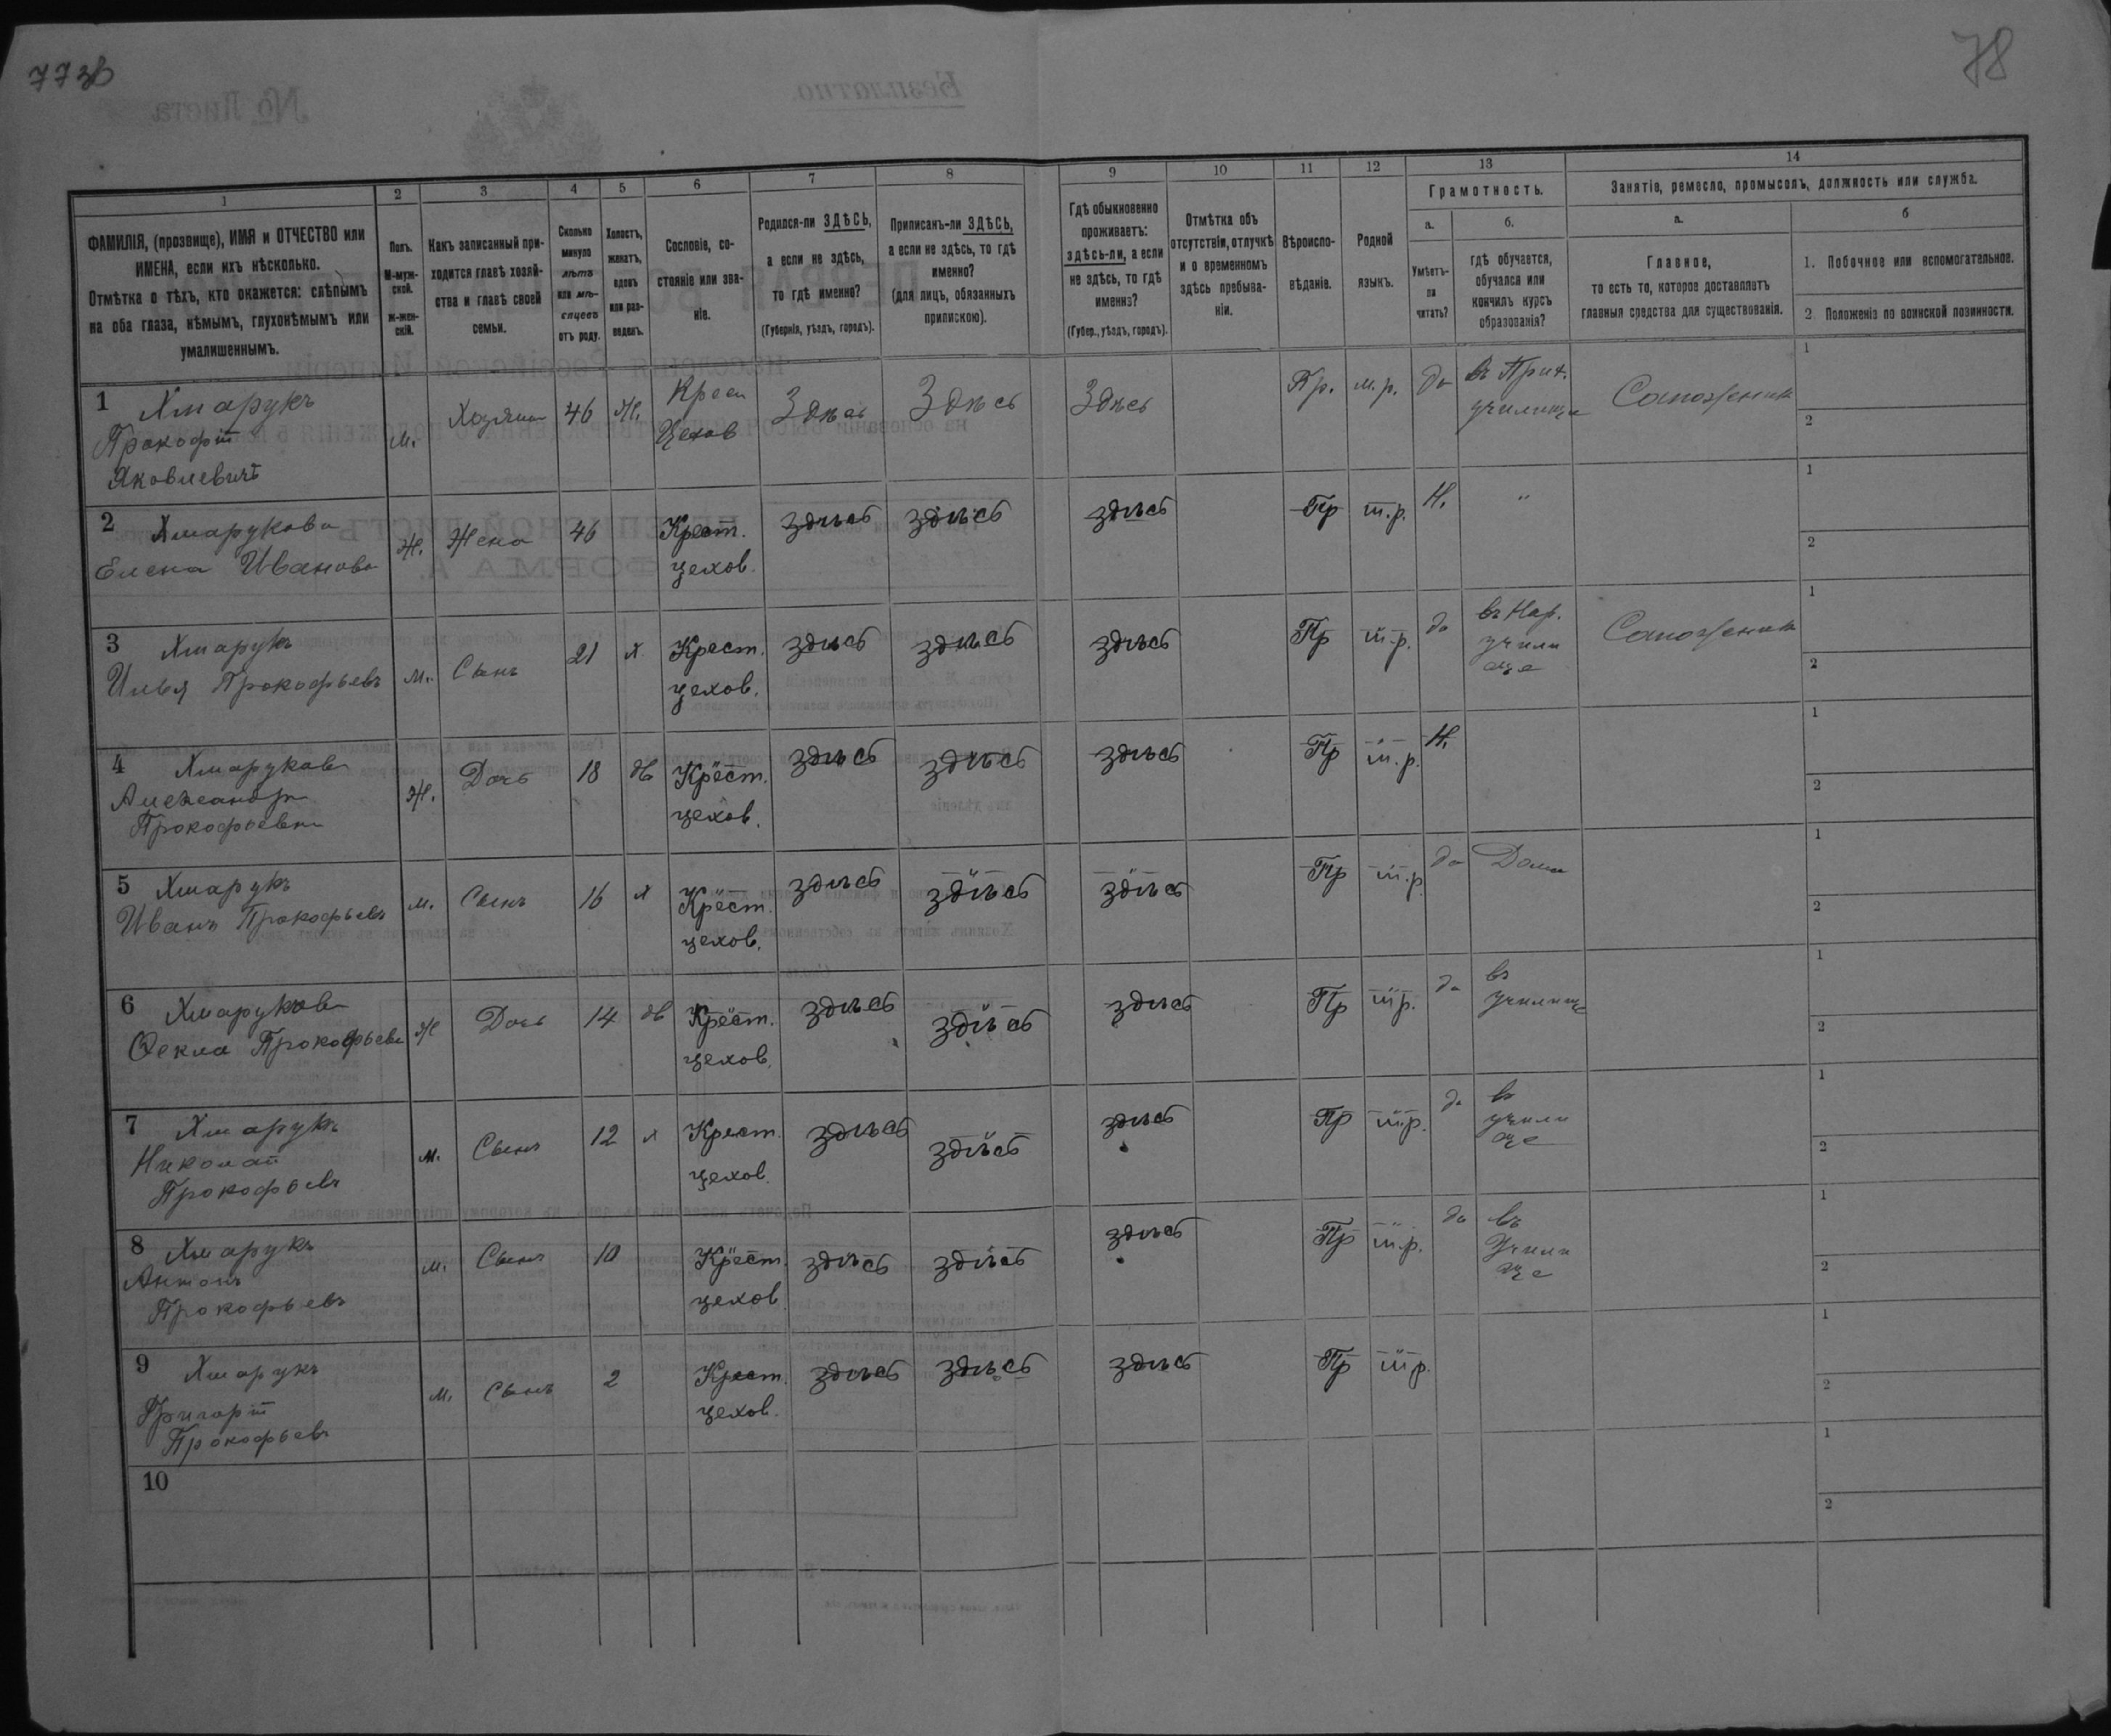 78
1
2
3
4
5
6
7
8
9
10
11
12
13
14
ФАМИЛІЯ, (прозвище), ИМЯ и ОТЧЕСТВО или
ИМЕНА, если ихъ нѣсколько.
Отмѣтка о тѣхъ, кто окажется: слѣпымъ
на оба глаза, нѣмымъ, глухонѣмымъ или
умалишеннымъ.
Полъ.
М-муж-
ской.
Ж-жен-
скій.
Какъ записанный при-
ходится главѣ хозяй-
ства и главѣ своей
семьи.
Сколько
минуло
лѣтъ
или мѣ-
сяцевъ
отъ роду.
Холостъ,
женатъ,
вдовъ
или раз-
веденъ.
Сословіе, со-
стояніе или зва-
ніе.
Родился-ли ЗДѢСЬ,
а если не здѣсь,
то гдѣ именно?
(Губернія, уѣздъ, городъ).
Приписанъ-ли ЗДѢСЬ,
а если не здѣсь, то гдѣ
именно?
(для лицъ, обязанныхъ
припискою).
Гдѣ обыкновенно
проживаетъ:
здѣсь-ли, а если
не здѣсь, то гдѣ
именно?
(Губер., уѣздъ, городъ).
Отмѣтка объ
отсутствіи, отлучкѣ
и о временномъ
здѣсь пребыва-
ніи.
Вѣроиспо-
вѣданіе.
Родной
языкъ.
Грамотность.
а.
Умѣетъ-
ли
читать?
б.
гдѣ обучается,
обучался или
кончилъ курсъ
образованія?
Занятіе, ремесло, промыселъ, должность или служба.
а.
Главное,
то есть то, которое доставляетъ
главныя средства для существованія.
б
1. Побочное или вспомогательное.
2. Положеніе по воинской повинности.
1 Хмарукъ
Прокофій
Яковлевичъ
м. Хозяинъ 46 Ж.
Цехов
Здѣсь Здѣсь Здѣсь м.р. да
училище
Сапожник
1
2
2 Хмарукова
Елена Иванова
Ж. Жена 46 Крест.
цехов.
здѣсь здѣсь здѣсь Пр м.р. Н. "
1
2
3 Хмарукъ
Илья Прокофьевъ
м. Сынъ 21 х Крест.
цехов.
здѣсь здѣсь здѣсь Пр м.р. да въ Нар.
учили
ще
Сапожник
1
2
4 Хмарукова
Александра
Прокофьевна
Ж. Дочь 18 дв Крест.
цехов.
здѣсь здѣсь здѣсь Пр м.р. Н.
1
2
5 Хмарукъ
Иванъ Прокофьевъ
м. Сынъ 16 х Крест.
цехов.
здѣсь здѣсь здѣсь Пр м.р. да Дома
1
2
6 Хмарукова
Ѳекла Прокофьева
Ж Дочь 14 дв Крест.
цехов.
здѣсь здѣсь здѣсь Пр м.р. да въ
училище
1
2
7 Хмарукъ
Николай
Прокофьевъ
м. Сынъ 12 х Крест.
цехов.
здѣсь здѣсь здѣсь Пр м.р. да въ
учили
ще
1
2
8 Хмарукъ
Антонъ
Прокофьевъ
м. Сынъ 10 Крест.
цехов.
здѣсь здѣсь здѣсь Пр м.р. да въ
Учили
ще
1
2
9 Хмарукъ
Григорій
Прокофьевъ
м. Сынъ 2 Крест.
цехов.
здѣсь здѣсь здѣсь Пр м.р.
1
2
10
1
2